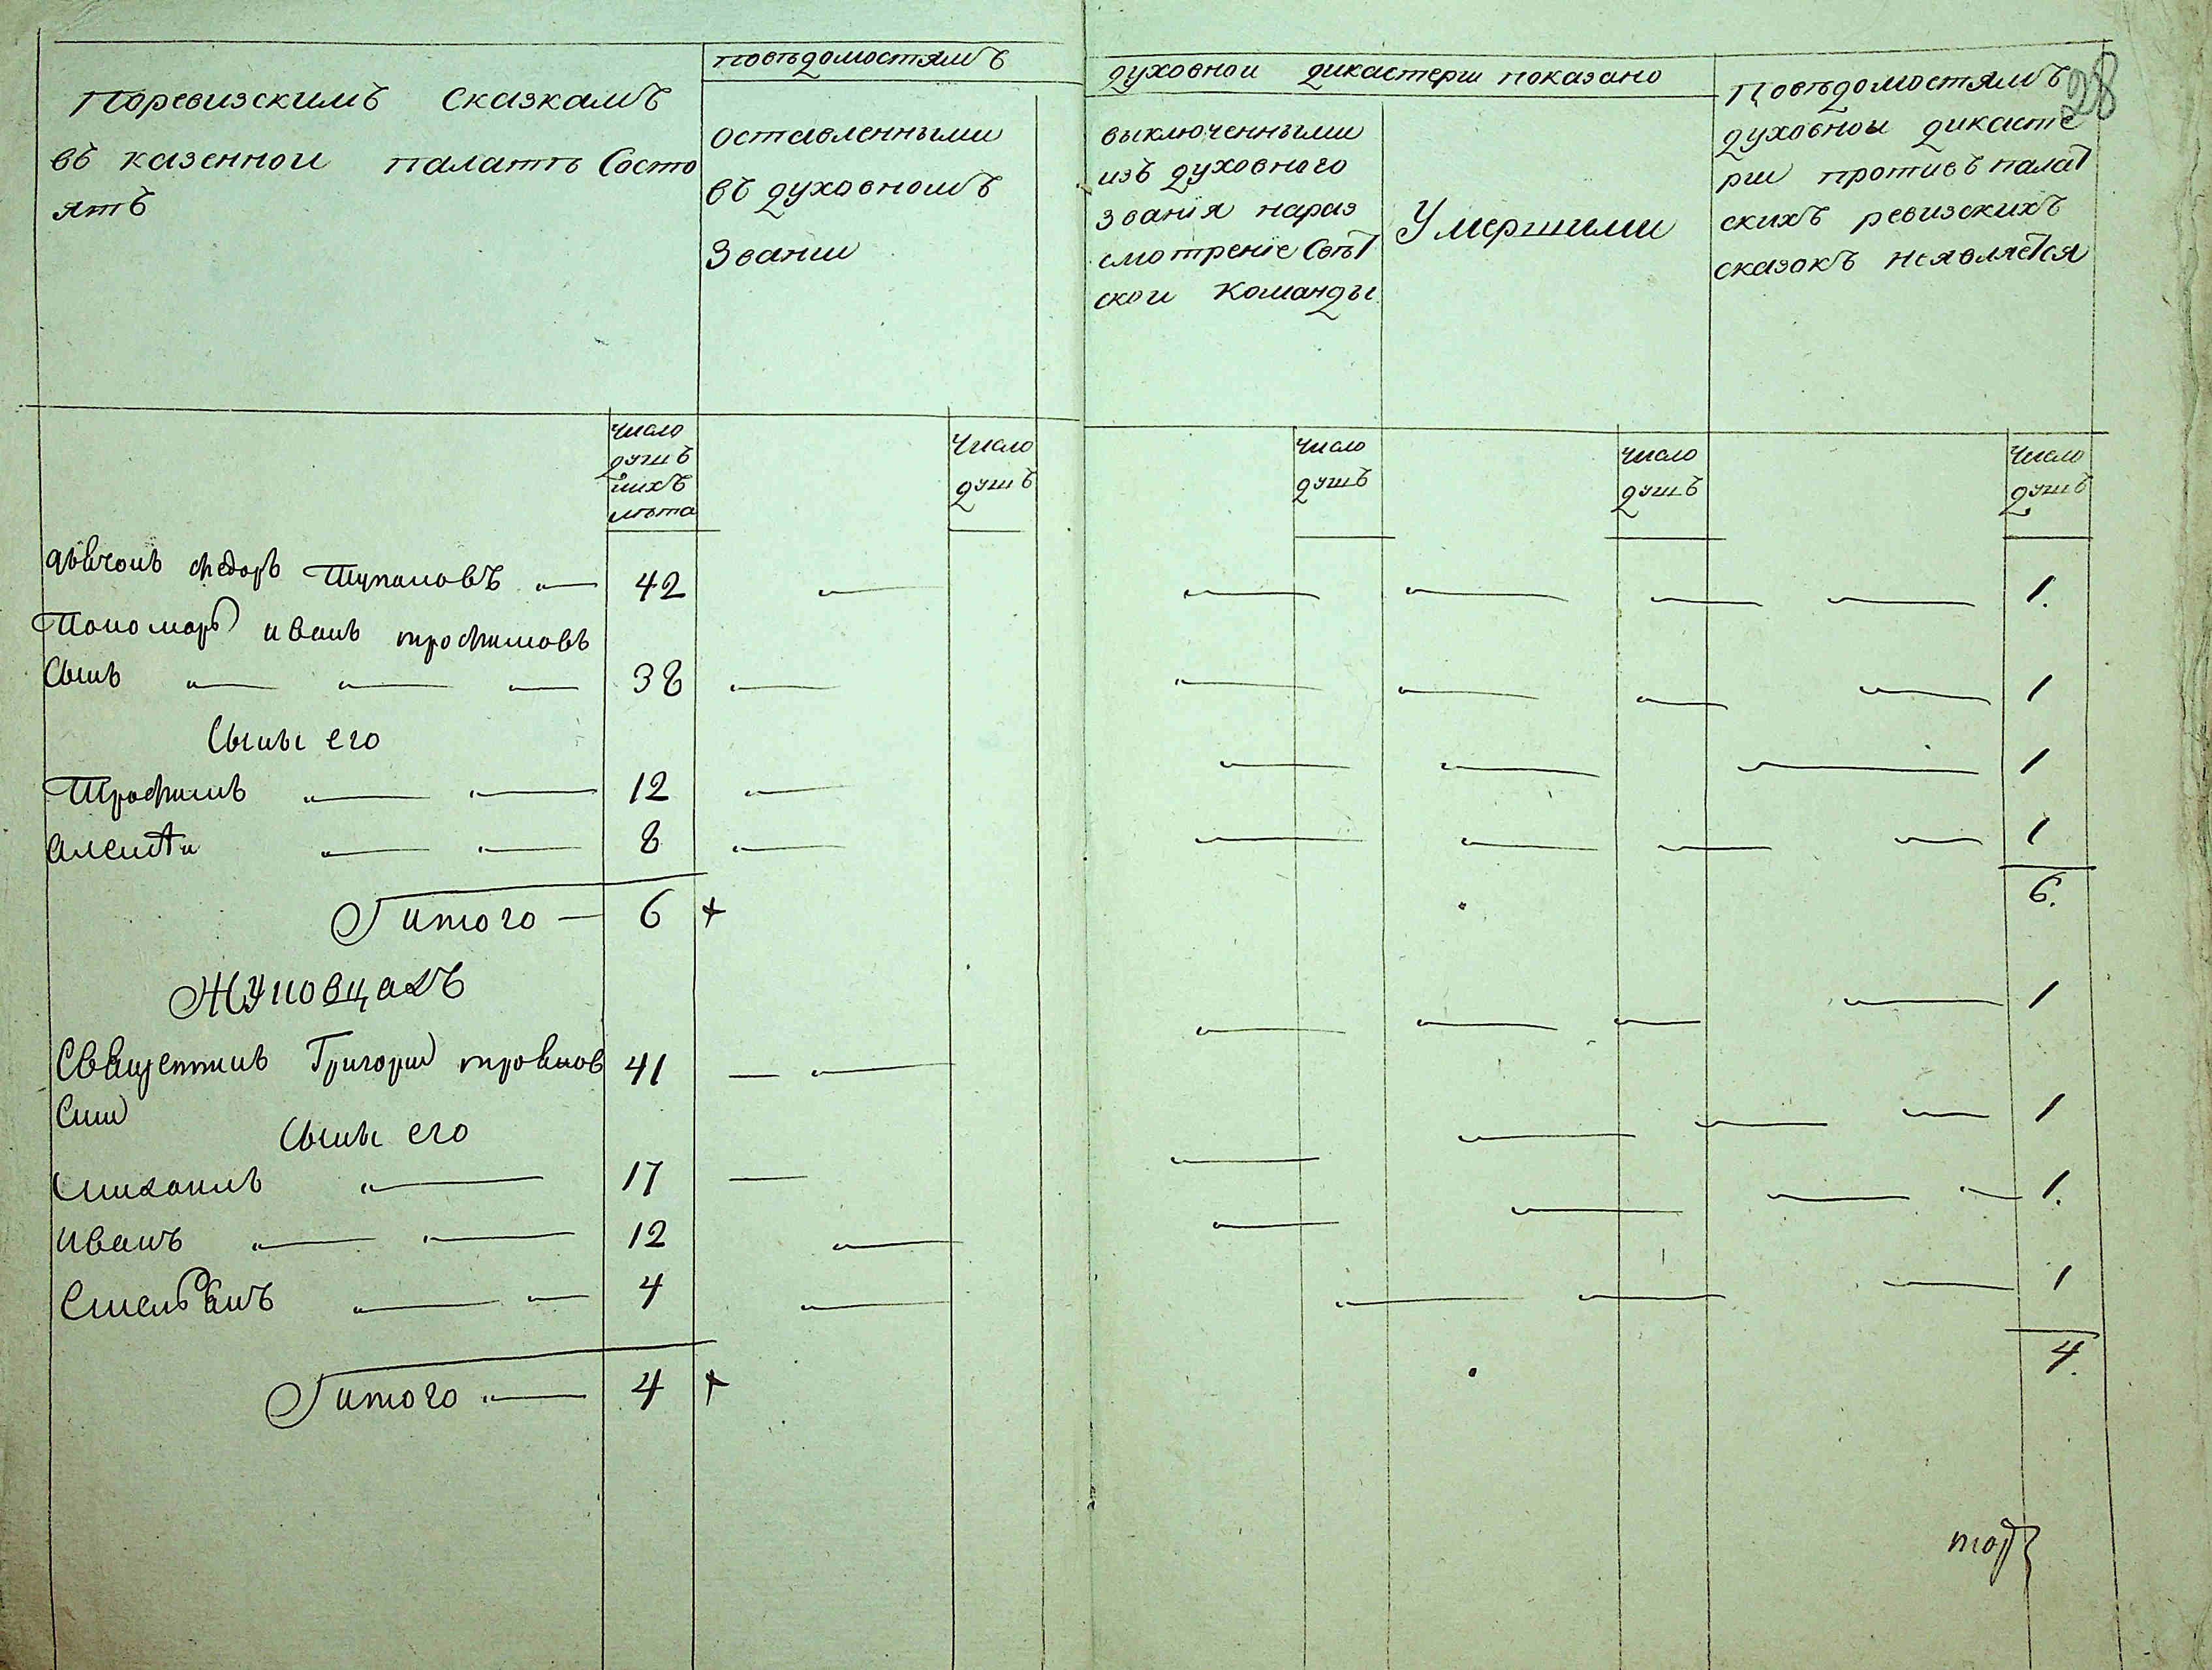 28
Поревизскимъ сказкамъ
въ казеннои палатѣ Состо
ятъ
повѣдомостямъ
оставленными
въ духовномъ
Звании
духовнои дикастерии показано
выключенными
изъ духовного
звания нараз
смотрение Свѣт
скои Команды
Умершими
Повѣдомостямъ
духовнои дикасте
рии противъ палат
скихъ ревизскихъ
сказокъ неявляется
число
душъ
иихъ
лѣта
число
душъ
число
душъ
число
душъ
число
душъ
дьячокъ Федоръ 42 1.
Пономарь иванъ трофимовъ
Сынъ 38 1
Сыны его
Трофимъ 12 1
алексѣи 8 1
итого 6 6.
Жуковцахъ
Священникъ Григории трояновски 41 1
Сыны его
михаилъ 17 1
иванъ 12 1.
Емельянъ 4 1
итого 4 4.